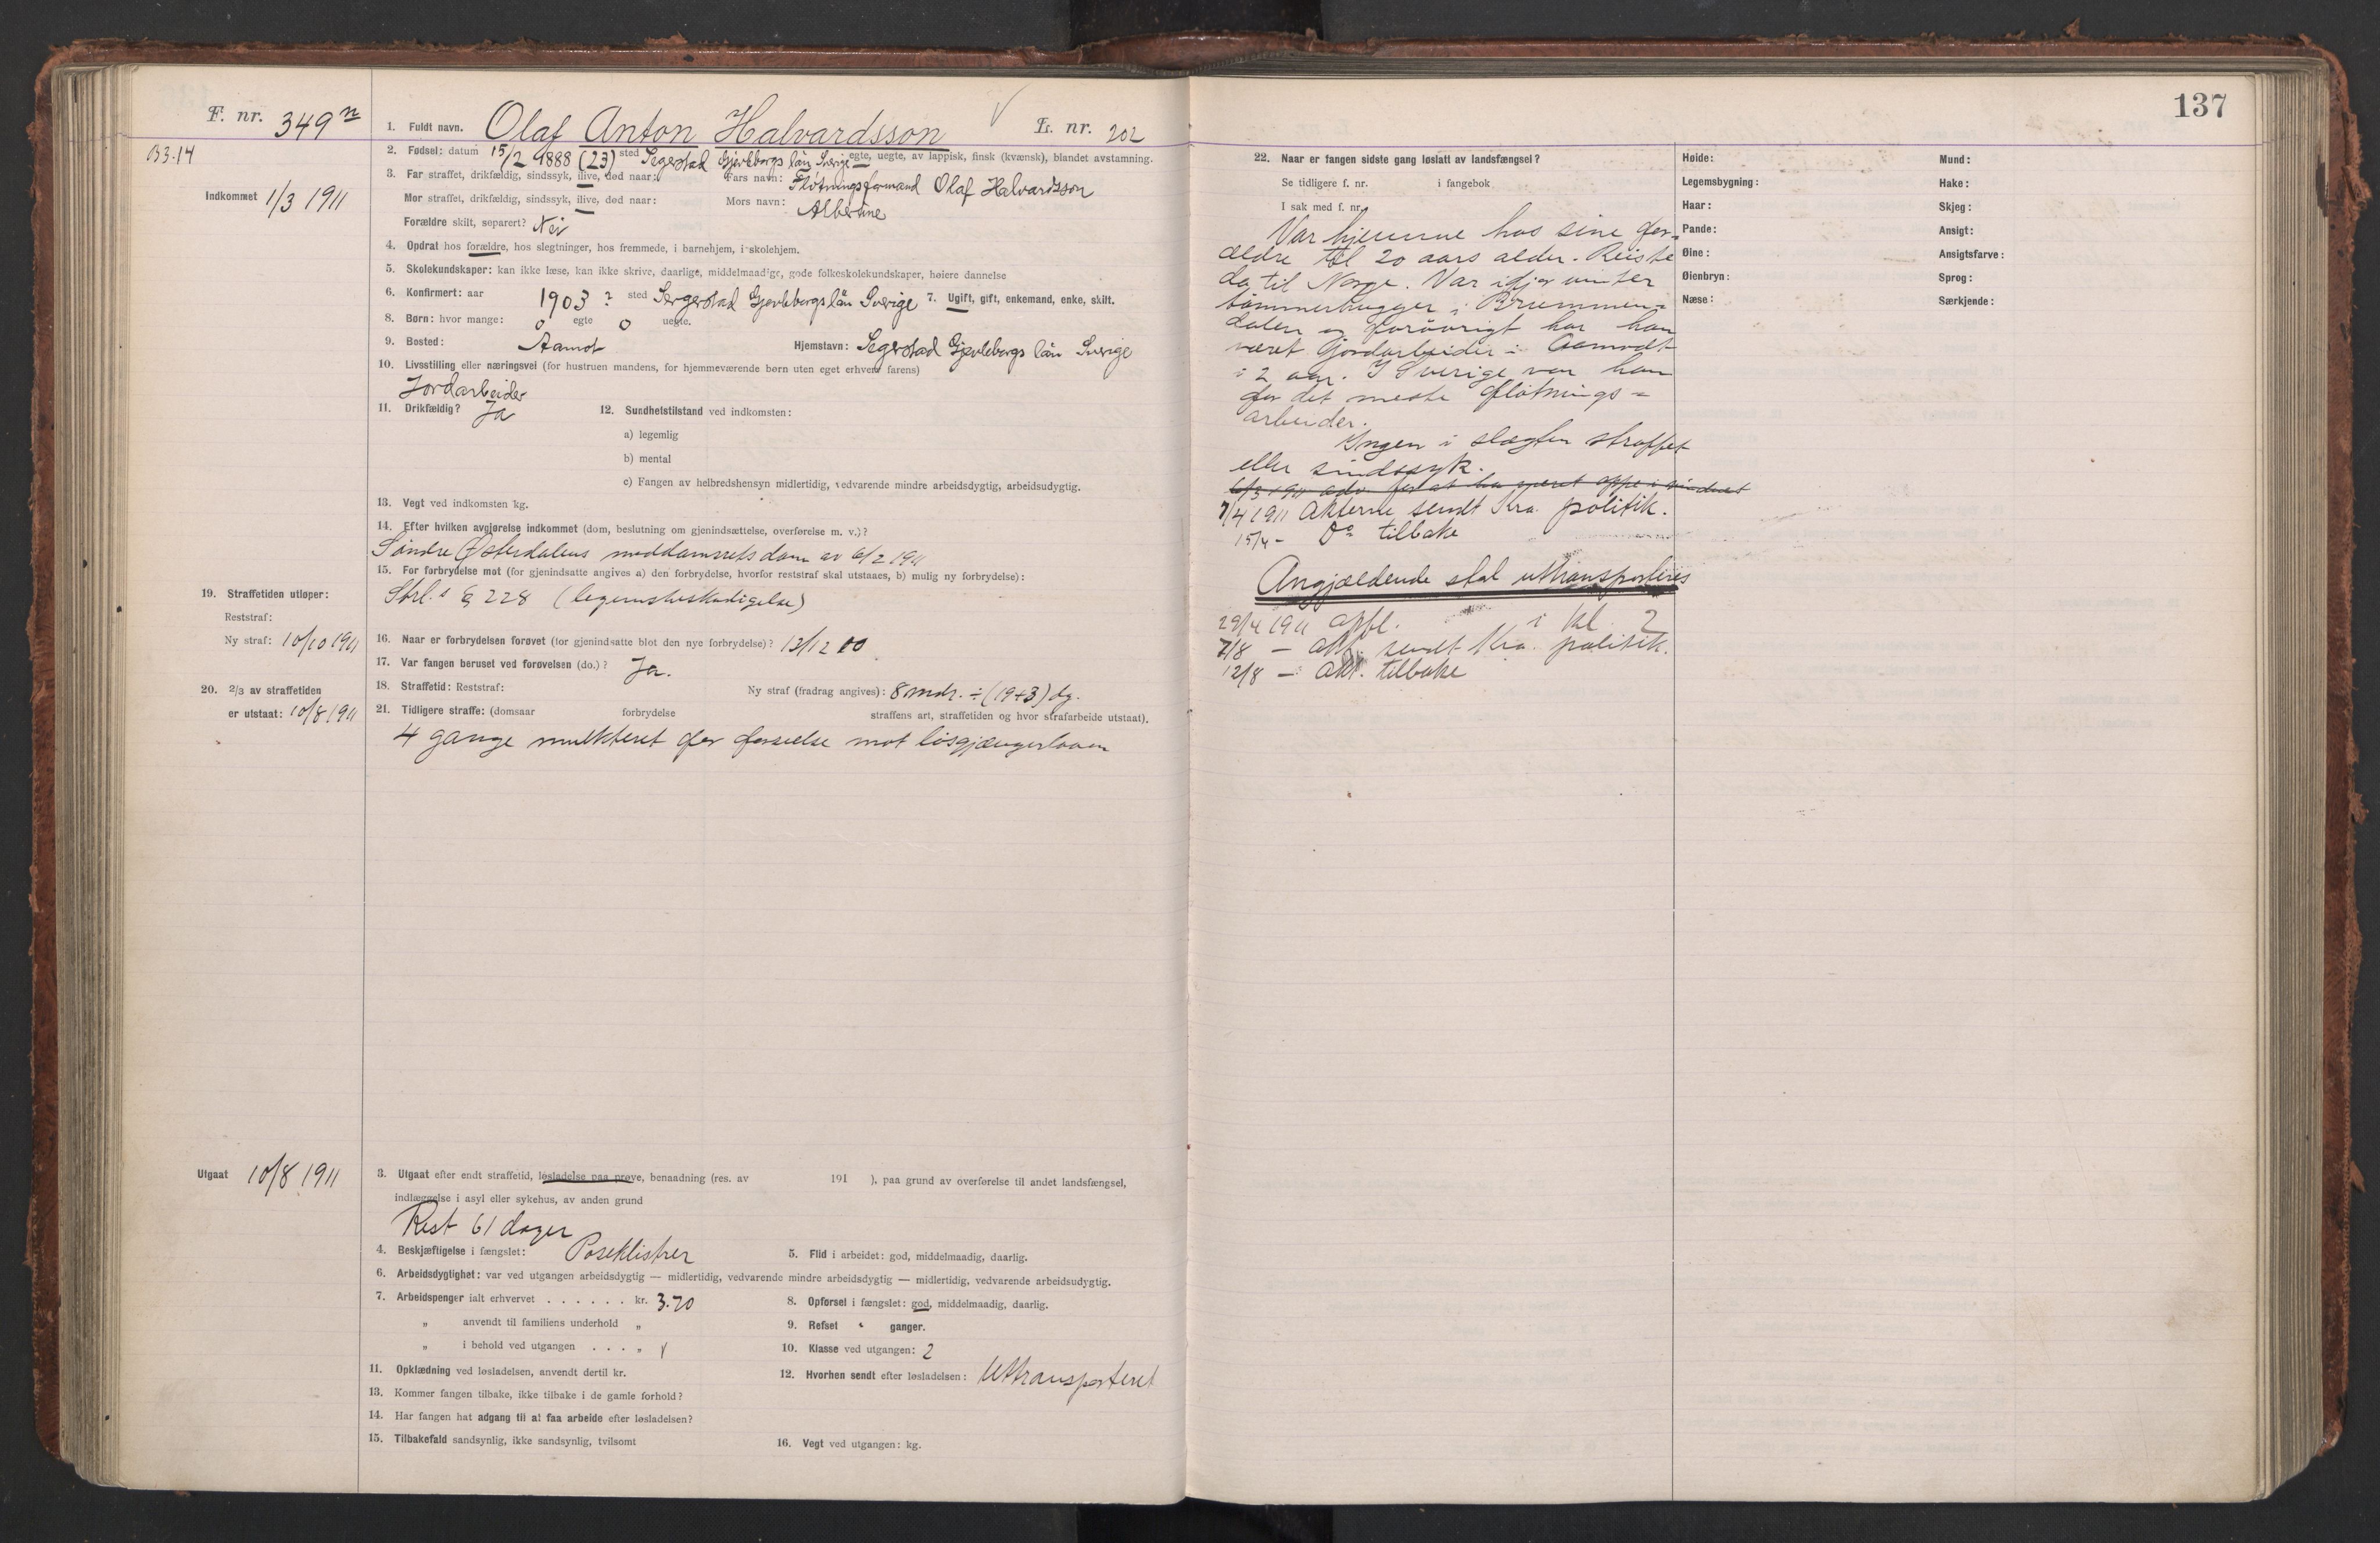 F. nr. 349 n
B3.14
Indkommet 1/3 1911
1. Fuldt navn. Olaf Anton Halvardsson L. nr. 202
2. Fødsel: datum 15/2 1888 (23) sted Segerstad Gjevleborgs län Sverige egte, uegte, av lappisk, finsk (kvænsk), blandet avstamning.
3. Far straffet, drikfældig, sindssyk, ilive, død naar: Fars navn: Fløtningsformand Olaf Halvardsson
Mor straffet, drikfældig, sindssyk, ilive, død naar: Mors navn: Albertine
Forældre skilt, separert? Nei
4. Opdrat hos forældre, hos slegtninger, hos fremmede, i barnehjem, i skolehjem.
5. Skolekundskaper: kan ikke læse, kan ikke skrive, daarlige, middelmaadige, gode folkeskolekundskaper, høiere dannelse
6. Konfirmert: aar 1903 ? sted Sergerstad Gjevleborgs län Sverige 7. Ugift, gift, enkemand, enke, skilt.
8. Børn: hvor mange: 0 egte 0 uegte.
9. Bosted: Aamot Hjemstavn: Segerstad Gjevleborgs län Sverige
10. Livsstilling eller næringsvei (for hustruen mandens, for hjemmeværende børn uten eget erhverv farens)
Jordarbeider
11. Drikfældig? Ja 12. Sundhetstilstand ved indkomsten:
a) legemlig
b) mental
c) Fangen av helbredshensyn midlertidig, vedvarende mindre arbeidsdygtig, arbeidsudygtig.
13. Vegt ved indkomsten kg.
14. Efter hvilken avgjørelse indkommet (dom, beslutning om gjenindsættelse, overførelse m. v.)?
Søndre Østerdalens meddomsrets dom av 6/2 1911
15. For forbrydelse mot (for gjenindsatte angives a) den forbrydelse, hvorfor reststraf skal utstaaes, b) mulig ny forbrydelse):
Strl.s § 228 (legemsbeskadigelse)
19. Straffetiden utløper:
Reststraf:
Ny straf: 10/10 1911
16. Naar er forbrydelsen forøvet (for gjenindsatte blot den nye forbrydelse)? 13/12 10
17. Var fangen beruset ved forøvelsen (do.)? Ja.
18. Straffetid: Reststraf: Ny straf (fradrag angives): 8 mdr. ÷ (19+3) dg.
20. 2/3 av straffetiden
er utstaat: 10/8 1911
21. Tidligere straffe: (domsaar forbrydelse straffens art, straffetiden og hvor strafarbeide utstaat).
4 gange mulkteret for forseelse mot løsgjængerloven
Utgaat 10/8 1911
3. Utgaat efter endt straffetid, løsladelse paa prøve, benaadning (res. av 191 ), paa grund av overførelse til andet landsfængsel,
indlæggelse i asyl eller sykehus, av anden grund
Rest 61 dager
4. Beskjæftigelse i fængslet: Poseklistrer 5. Flid i arbeidet: god, middelmaadig, daarlig.
6. Arbeidsdygtighet: var ved utgangen arbeidsdygtig — midlertidig, vedvarende mindre arbeidsdygtig — midlertidig, vedvarende arbeidsudygtig.
7. Arbeidspenger ialt erhvervet . . . . . . kr. 3.70 8. Opførsel i fængslet: god, middelmaadig, daarlig.
„ anvendt til familiens underhold „ 9. Refset ganger.
„ i behold ved utgangen . . . „ 10. Klasse ved utgangen: 2
11. Opklædning ved løsladelsen, anvendt dertil kr. 12. Hvorhen sendt efter løsladelsen: Uttransporteret
13. Kommer fangen tilbake, ikke tilbake i de gamle forhold?
14. Har fangen hat adgang til at faa arbeide efter løsladelsen?
15. Tilbakefald sandsynlig, ikke sandsynlig, tvilsomt 16. Vegt ved utgangen: kg.
137
22. Naar er fangen sidste gang løslatt av landsfængsel?
Se tidligere f. nr. i fangebok
I sak med f. nr.
Var hjemme hos sine for-
ældre til 20 aars alder. Reiste
da til Norge. Var ifjor vinter
tømmerhugger i Brummen-
dalen og forøvrigt har han
været jordarbeider i Aamodt
i 2 aar. I Sverige var han
for det meste fløtnings-
arbeider.
Ingen i slægten straffet
eller sindssyk.
6/3 1911 adv. for at ha været oppe i vinduet
7/4 1911 Akterne sendt Kra. politik.
15/4 - Do tilbake
Angjældende skal uttransporteres
29/4 1911 opfl. i kl. 2
7/8 — akt. sendt Kra. politik.
12/8 — akt. tilbake
Høide: Mund:
Legemsbygning: Hake:
Haar: Skjeg:
Pande: Ansigt:
Øine: Ansigtsfarve:
Øienbryn: Sprog:
Næse: Særkjende: